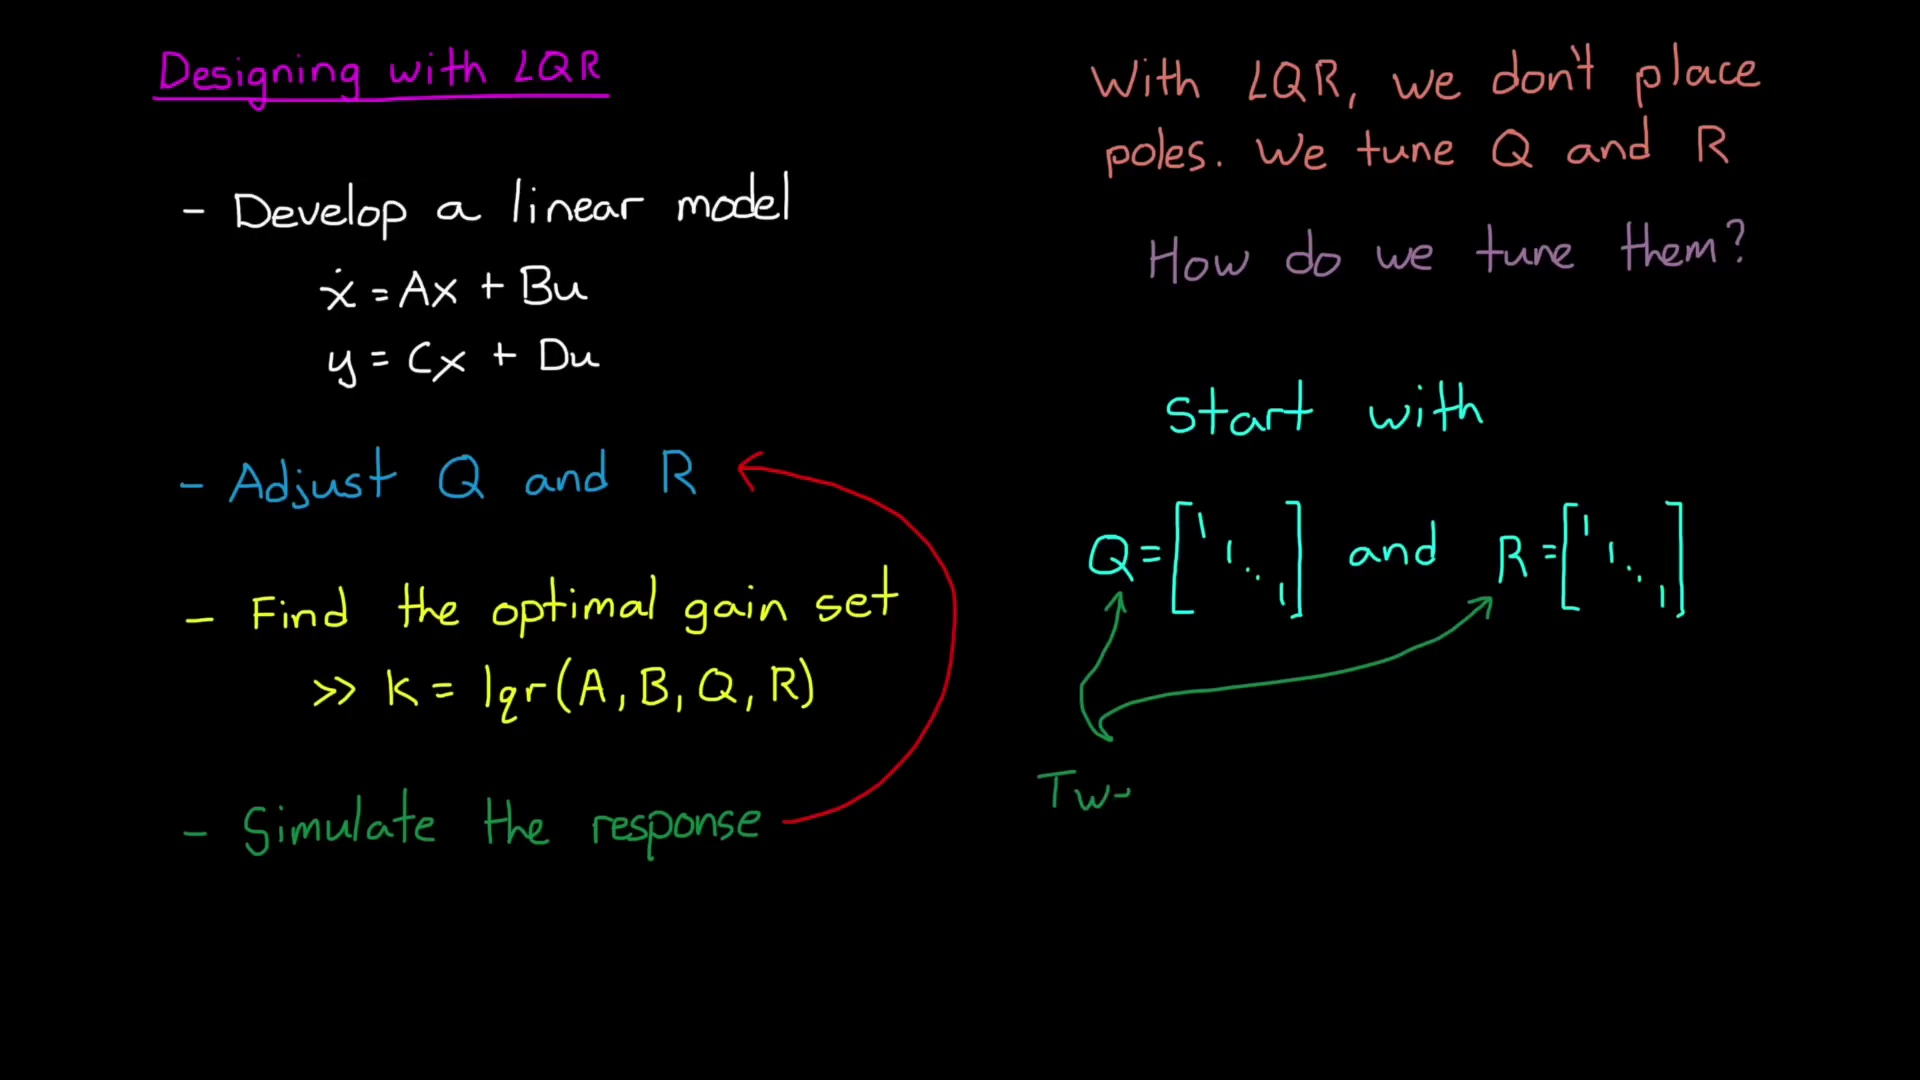 Designing with LQR
- Develop a linear model
ẋ = Ax + Bu
y = Cx + Du
- Adjust Q and R
- Find the optimal gain set
>> K = lqr(A, B, Q, R)
- Simulate the response
With LQR, we don't place
poles. We tune Q and R
How do we tune them?
Start with
Q = [1 1 ⋱ 1] and R = [1 1 ⋱ 1]
Tw